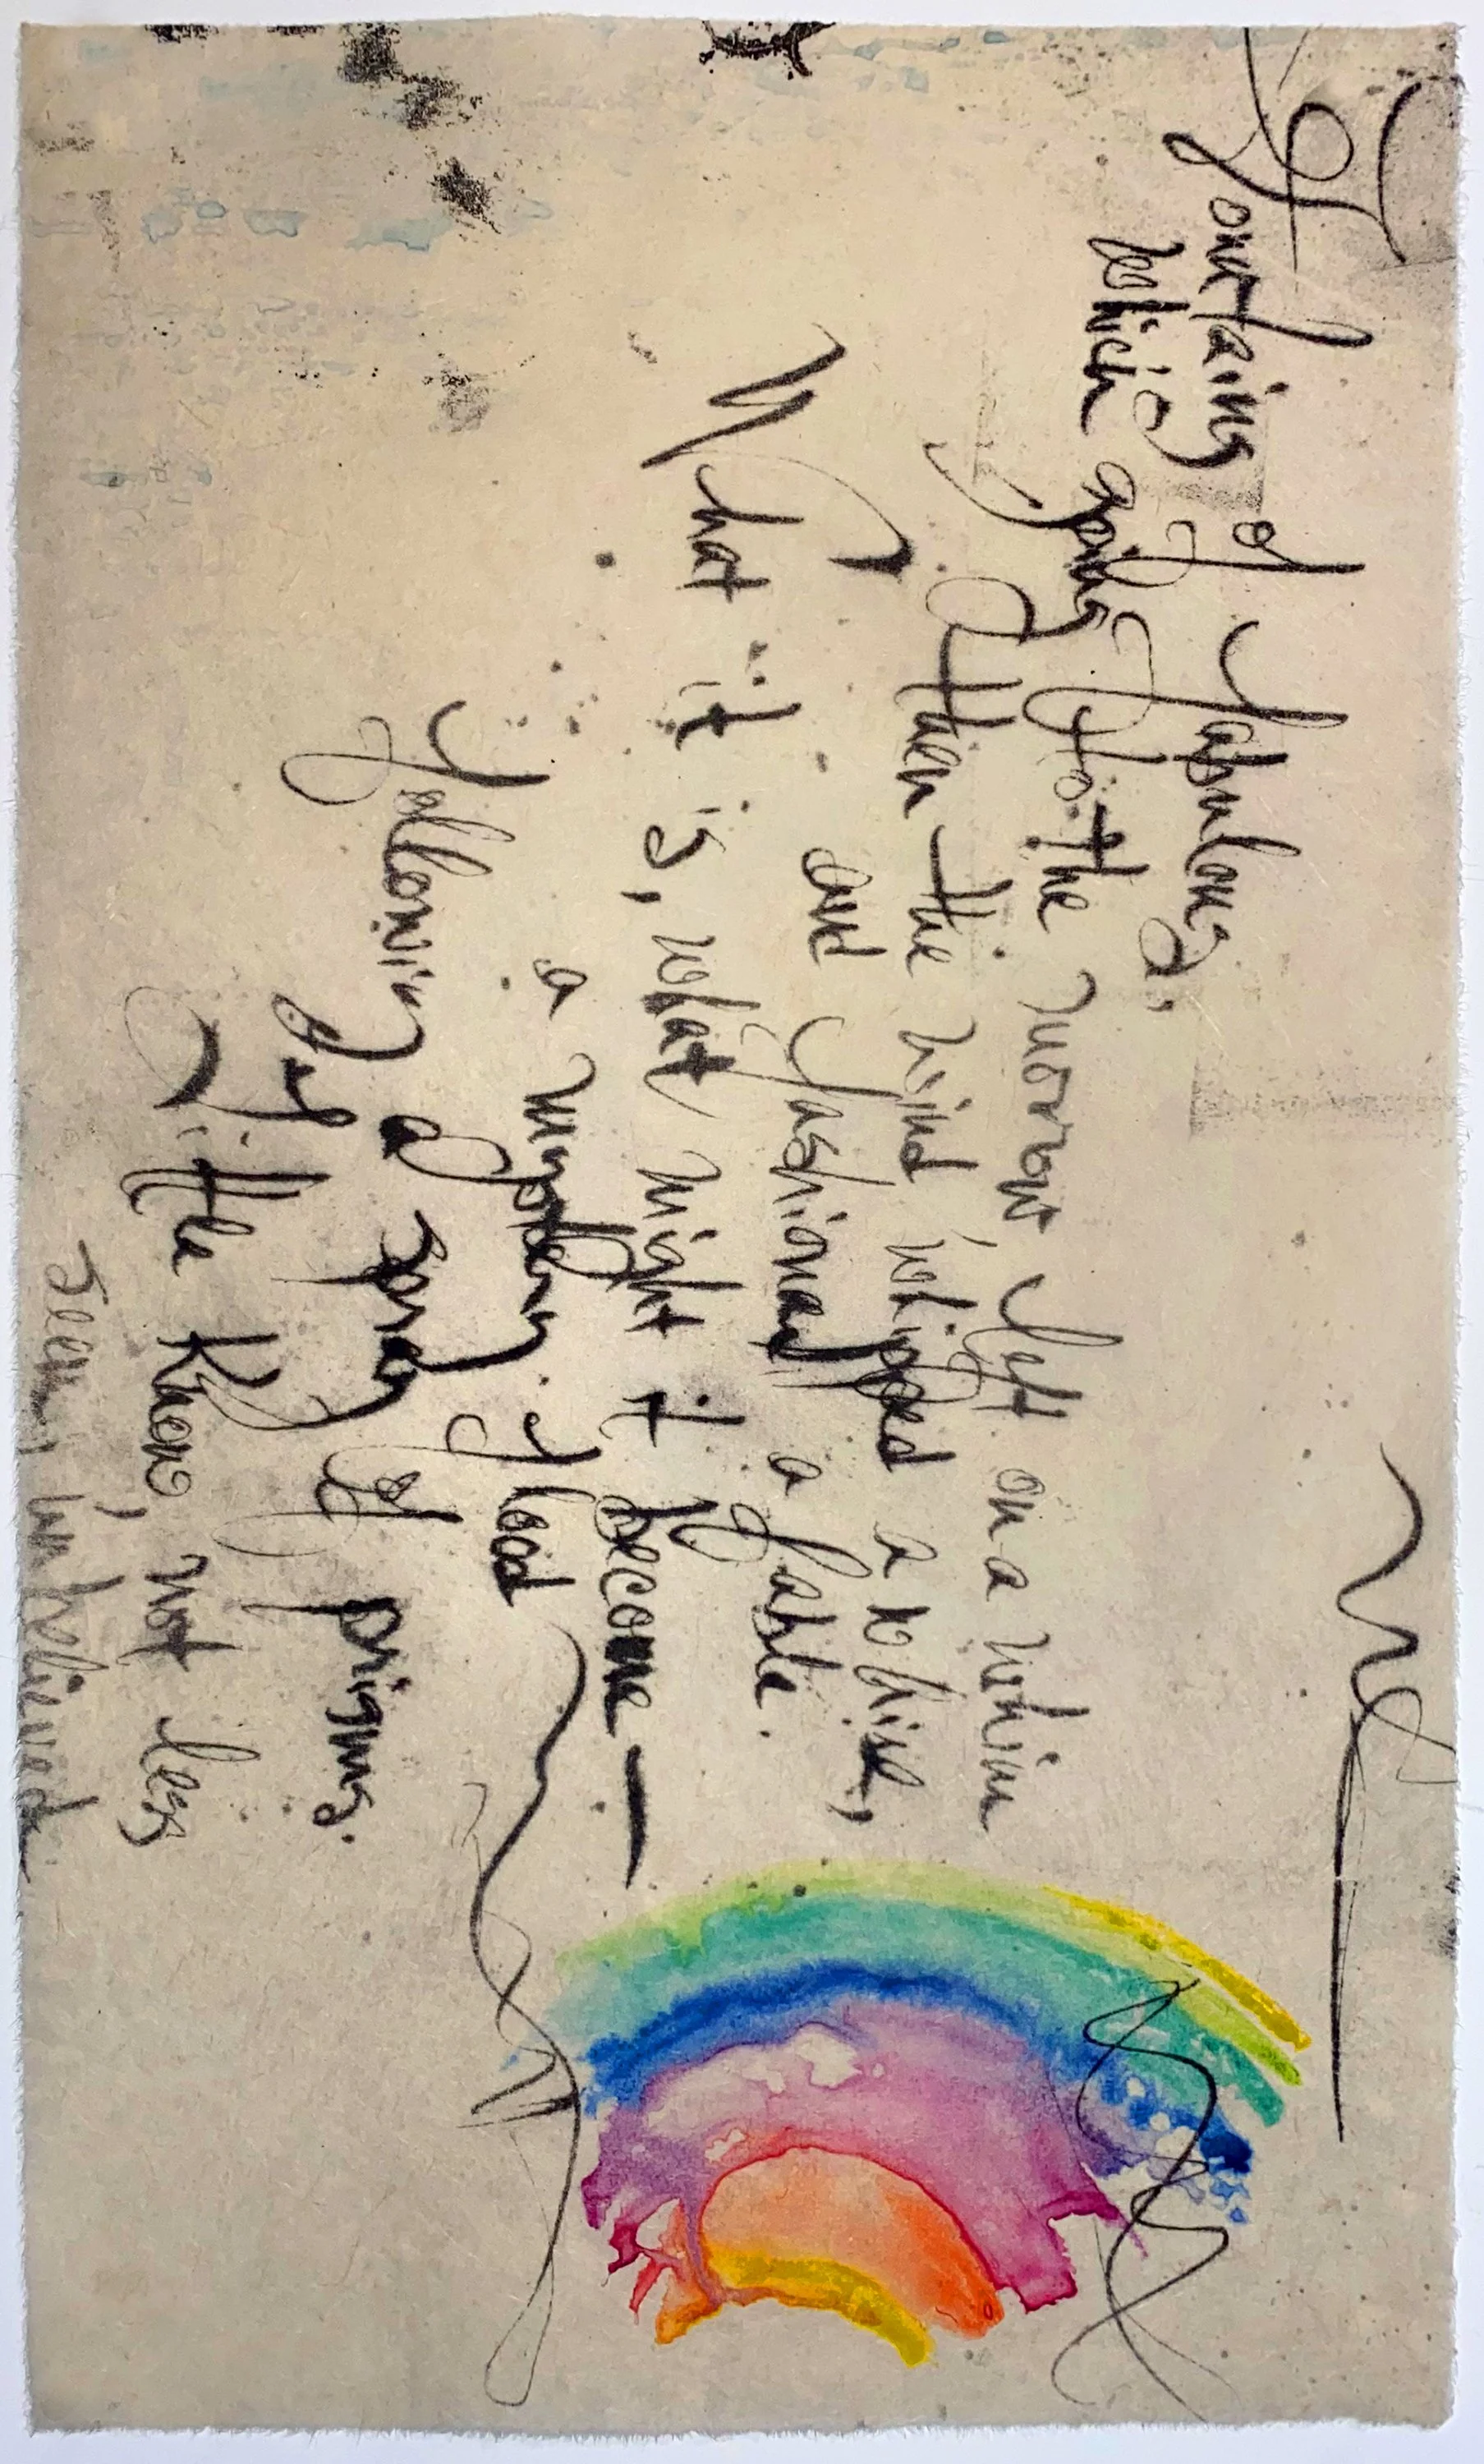 Fountains of fabulous,
which going to the morrow, left on a whim
then the wind, whipped a while,
and fashioned a fable.
What it is, what might it become —
a mystery flood
following a spray of prisms.
little knew, not less
seen, unbelieved